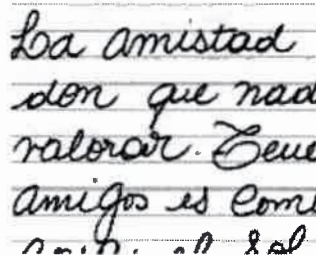 La amistad
don que nad
valorar. Tene
amigos es como
el sol